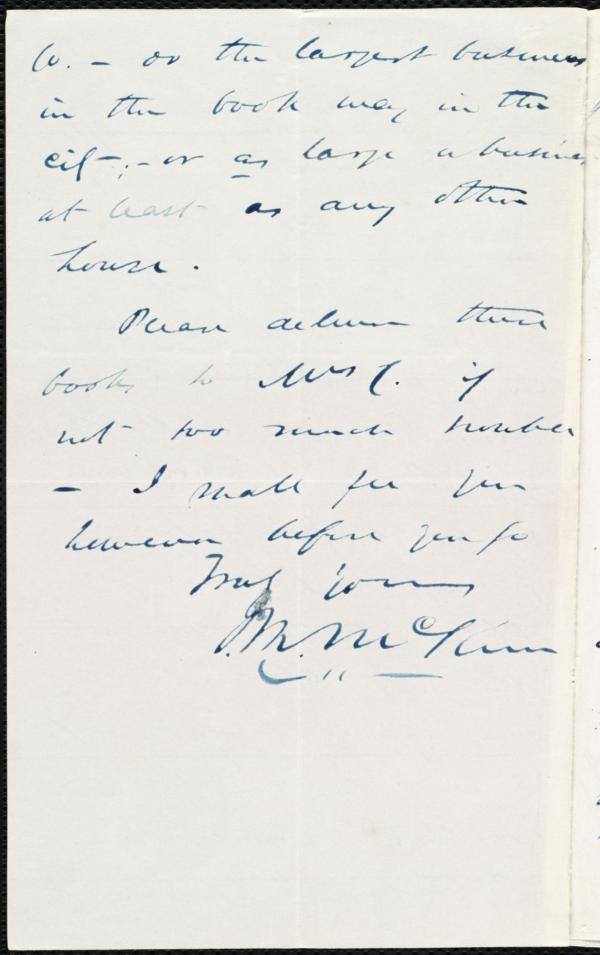 Co. – do the largest business
in the book way in the
city; – or as large a business
at least as any other
house.
Please deliver these
books to Mrs C. if
not too much trouble
– I shall see you
however before you go
Truly yours
J. M. McKim